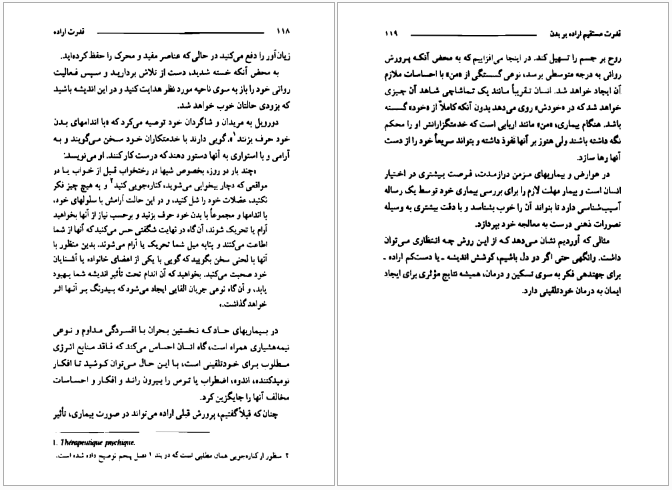 ۱۱۸ قدرت اراده
زیان‌آور را دفع می‌کنید در حالی که عناصر مفید و محرک را حفظ کرده‌اید.
به محض آنکه خسته شدید، دست از تلاش بردارید و سپس فعالیت
روانی خود را باز به سوی ناحیه مورد نظر هدایت کنید و در این اندیشه باشید
که بزودی حالتان خوب خواهد شد.
دورویل به مریدان و شاگردان خود توصیه می‌کرد که «با اندامهای بدن
خود حرف بزنند۱»، گویی دارند با خدمتکاران خود سخن می‌گویند و به
آرامی و با استواری به آنها دستور دهند که درست کار کنند. او می‌نویسد:
«چند بار در روز، بخصوص شبها در رختخواب قبل از خواب یا در
مواقعی که دچار بیخوابی می‌شوید، کناره‌جویی کنید۲ و به هیچ چیز فکر
نکنید، عضلات خود را شل کنید، و در این حالت آرامش با سلولهای خود،
با اندامها و مجموعاً با بدن خود حرف بزنید و برحسب نیاز از آنها بخواهید
آرام یا تحریک شوند، آن‌گاه در نهایت شگفتی حس می‌کنید که آنها از شما
اطاعت می‌کنند و بنابه میل شما تحریک یا آرام می‌شوند. بدین منظور با
آنها با لحنی سخن بگویید که گویی با یکی از اعضای خانواده یا آشنایان
خود صحبت می‌کنید. بخواهید که آن اندام تحت تأثیر اندیشه شما بهبود
یابد، و آن‌گاه نوعی جریان القایی ایجاد می‌شود که بیدرنگ بر آنها اثر
خواهد گذاشت.»
در بیماریهای حاد که نخستین بحران با افسردگی مداوم و نوعی
نیمه‌هشیاری همراه است، گاه انسان احساس می‌کند که فاقد منابع انرژی
مطلوب برای خودتلقینی است، با این حال می‌توان کوشید تا افکار
نومیدکننده، اندوه، اضطراب یا ترس را بیرون راند و افکار و احساسات
مخالف آنها را جایگزین کرد.
چنان که قبلاً گفتیم، پرورش قبلی اراده می‌تواند در صورت بیماری، تأثیر
1. Thérapeutique psychique.
۲ منظور از کناره‌جویی همان مطلبی است که در بند ۱ فصل پنجم توضیح داده شده است.
قدرت مستقیم اراده بر بدن ۱۱۹
روح بر جسم را تسهیل کند. در اینجا می‌افزاییم که به محض آنکه پرورش
روانی به درجه متوسطی برسد، نوعی گسستگی از «من» با احساسات ملازم
آن ایجاد خواهد شد. انسان تقریباً مانند یک تماشاچی شاهد آن چیزی
خواهد شد که در «خودش» روی می‌دهد بدون آنکه کاملاً از «خود» گسسته
باشد. هنگام بیماری، «من» مانند اربابی است که خدمتگزارانش او را محکم
نگه داشته باشند ولی هنوز بر آنها نفوذ داشته و بتواند سریعاً خود را از دست
آنها رها سازد.
در عوارض و بیماریهای مزمن درازمدت، فرصت بیشتری در اختیار
انسان است و بیمار مهلت لازم را برای بررسی بیماری خود توسط یک رساله
آسیب‌شناسی دارد تا بتواند آن را خوب بشناسد و با دقت بیشتری به وسیله
تصورات ذهنی درست به معالجه خود بپردازد.
مثالی که آوردیم نشان می‌دهد که از این روش چه انتظاری می‌توان
داشت. وانگهی حتی اگر دو دل باشیم، کوشش اندیشه ـ یا دست‌کم اراده ـ
برای جهتدهی فکر به سوی تسکین و درمان، همیشه نتایج مؤثری برای ایجاد
ایمان به درمان خودتلقینی دارد.